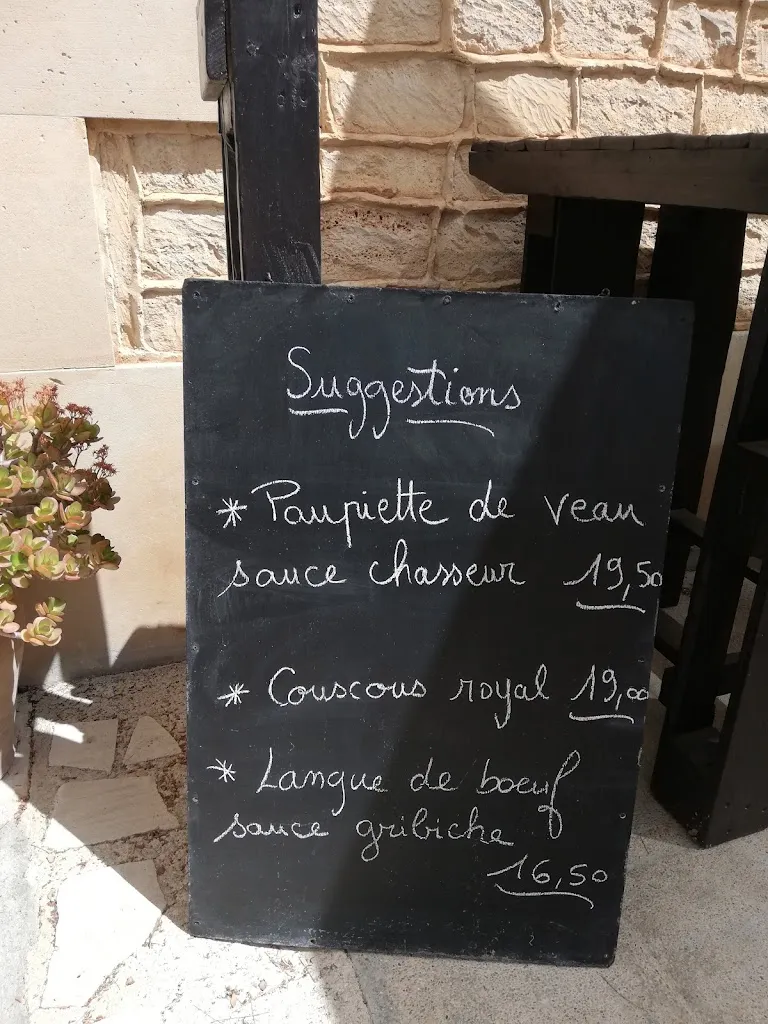 Suggestions
* Paupiette de veau
sauce chasseur 19,50
* Couscous royal 19,00
* Langue de boeuf
sauce gribiche
16,50